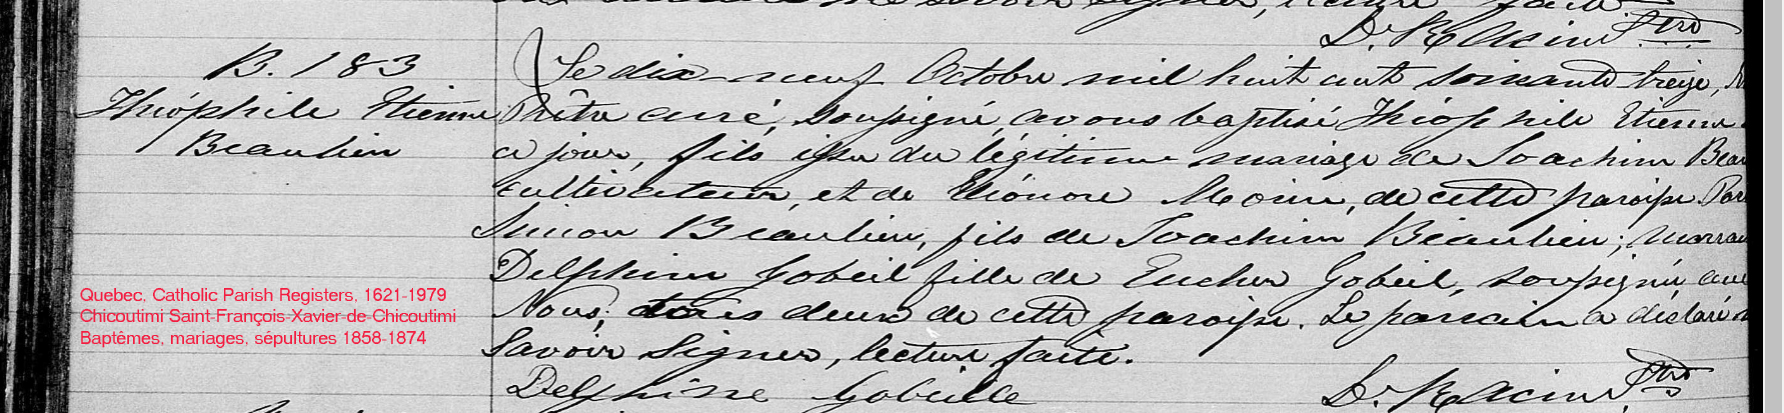 D. Racine Ptre
B. 183
Théophile Etienne
Beaulieu
Le dix-neuf Octobre mil huit cent soixante-treize, N
Prêtre curé, soussigné, avons baptisé Théophile Etienne
ce jour, fils issu du légitime mariage de Joachim Beau
cultivateur, et de Eléonore Morin, de cette paroisse. Par
Simon Beaulieu, fils de Joachim Beaulieu; marrai
Delphine Gobeil fille de Eucher Gobeil, soussignée avec
Nous; tous deux de cette paroisse. Le parrain a déclaré n
savoir signer, lecture faite.
Delphine Gobeille
D. Racine Ptre
Quebec, Catholic Parish Registers, 1621-1979
Chicoutimi Saint-François-Xavier-de-Chicoutimi
Baptêmes, mariages, sépultures 1858-1874